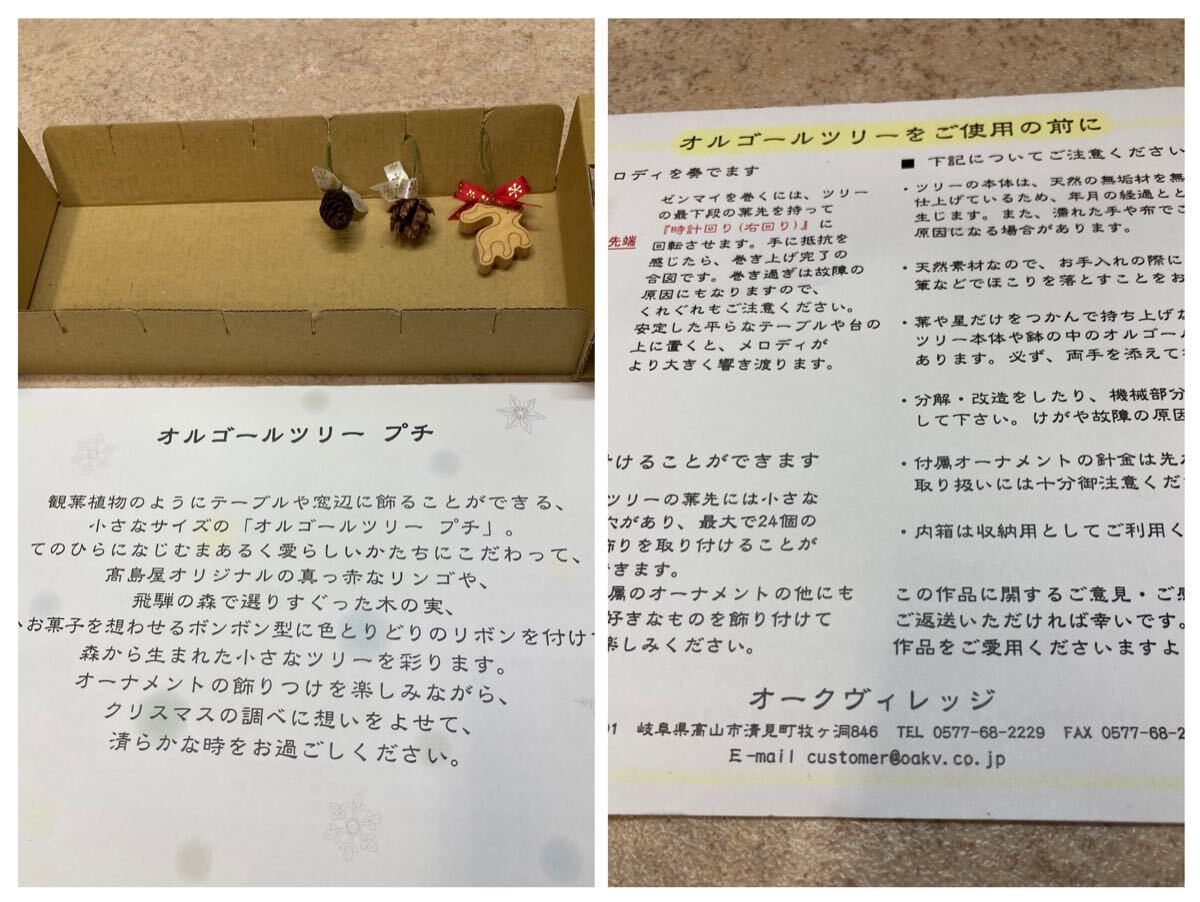 オルゴールツリー プチ
観葉植物のようにテーブルや窓辺に飾ることができる、
小さなサイズの「オルゴールツリー プチ」。
てのひらになじむまあるく愛らしいかたちにこだわって、
髙島屋オリジナルの真っ赤なリンゴや、
飛騨の森で選りすぐった木の実、
お菓子を想わせるボンボン型に色とりどりのリボンを付けて
森から生まれた小さなツリーを彩ります。
オーナメントの飾りつけを楽しみながら、
クリスマスの調べに想いをよせて、
清らかな時をお過ごしください。
オルゴールツリーをご使用の前に
ロディを奏でます
ゼンマイを巻くには、ツリー
の最下段の葉先を持って
『時計回り(右回り)』に
先端 回転させます。手に抵抗を
感じたら、巻き上げ完了の
合図です。巻き過ぎは故障の
原因にもなりますので、
くれぐれもご注意ください。
安定した平らなテーブルや台の
上に置くと、メロディが
より大きく響き渡ります。
けることができます
ツリーの葉先には小さな
穴があり、最大で24個の
飾りを取り付けることが
できます。
属のオーナメントの他にも
好きなものを飾り付けて
楽しみください。
■ 下記についてご注意ください
・ツリーの本体は、天然の無垢材を無
仕上げているため、年月の経過とと
生じます。また、濡れた手や布でこ
原因になる場合があります。
・天然素材なので、お手入れの際に
筆などでほこりを落とすことをお
・葉や星だけをつかんで持ち上げな
ツリー本体や鉢の中のオルゴー
あります。必ず、両手を添えて
・分解・改造をしたり、機械部分
して下さい。けがや故障の原因
・付属オーナメントの針金は先
取り扱いには十分御注意くだ
・内箱は収納用としてご利用く
この作品に関するご意見・ご感
ご返送いただければ幸いです。
作品をご愛用くださいますよ
オークヴィレッジ
01 岐阜県高山市清見町牧ヶ洞846 TEL 0577-68-2229 FAX 0577-68-2
E-mail customer@oakv.co.jp